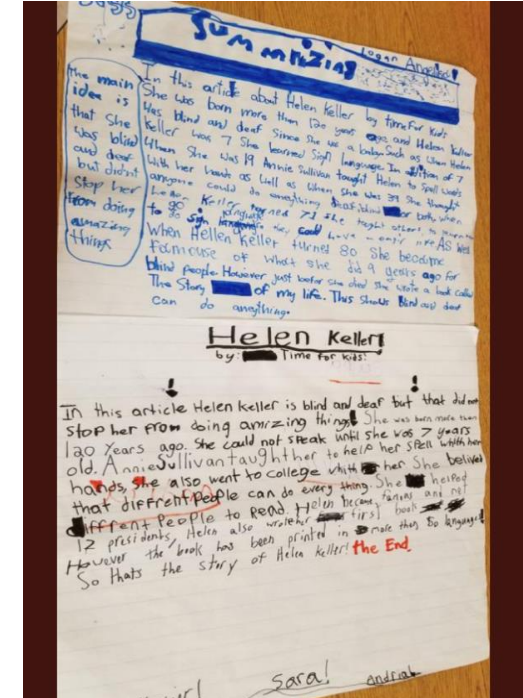 Summrizing
Logan Angelina!
The main
idea is
that She
was blind
and deaf
but didn't
stop her
from doing
amazing
things
In this article about Helen Keller by time for kids
She was born more than 120 years ago and Helen Keller
was blind and deaf Since she was a baby. Such as when Helen
Keller was 7 She learned Sign language. In addition of 7
When She was 19 Annie Sullivan taught Helen to Spell words
with her hands as well as when She was 39 She thought
anyone could do anything deaf, blind or both when
Helen Keller turned 71 she taught others to
to do sign language they could have life As well
When Hellen Keller turned 80 She became
of what She did 9 years ago for
blind people. However just before she died she wrote a book called
The Story of my life. This Shows Blind and deaf
can do anything.
Helen Keller!
by: Time for kids!
! !
In this article Helen Keller is blind and deaf but that did not
Stop her from doing amrizing things! She was born more then
120 Years ago. She could not speak until she was 7 years
old. Annie Sullivan taught her to help her spell whith her
hands, She also went to college whith her She belived
that diffrent People can do every thing. She helped
diffrent People to Read. Helen became famous and met
12 presidents, Helen also wrote her first book
However the book has been printed in more then 50 languages!
So thats the story of Helen Keller! the End.
Sara!